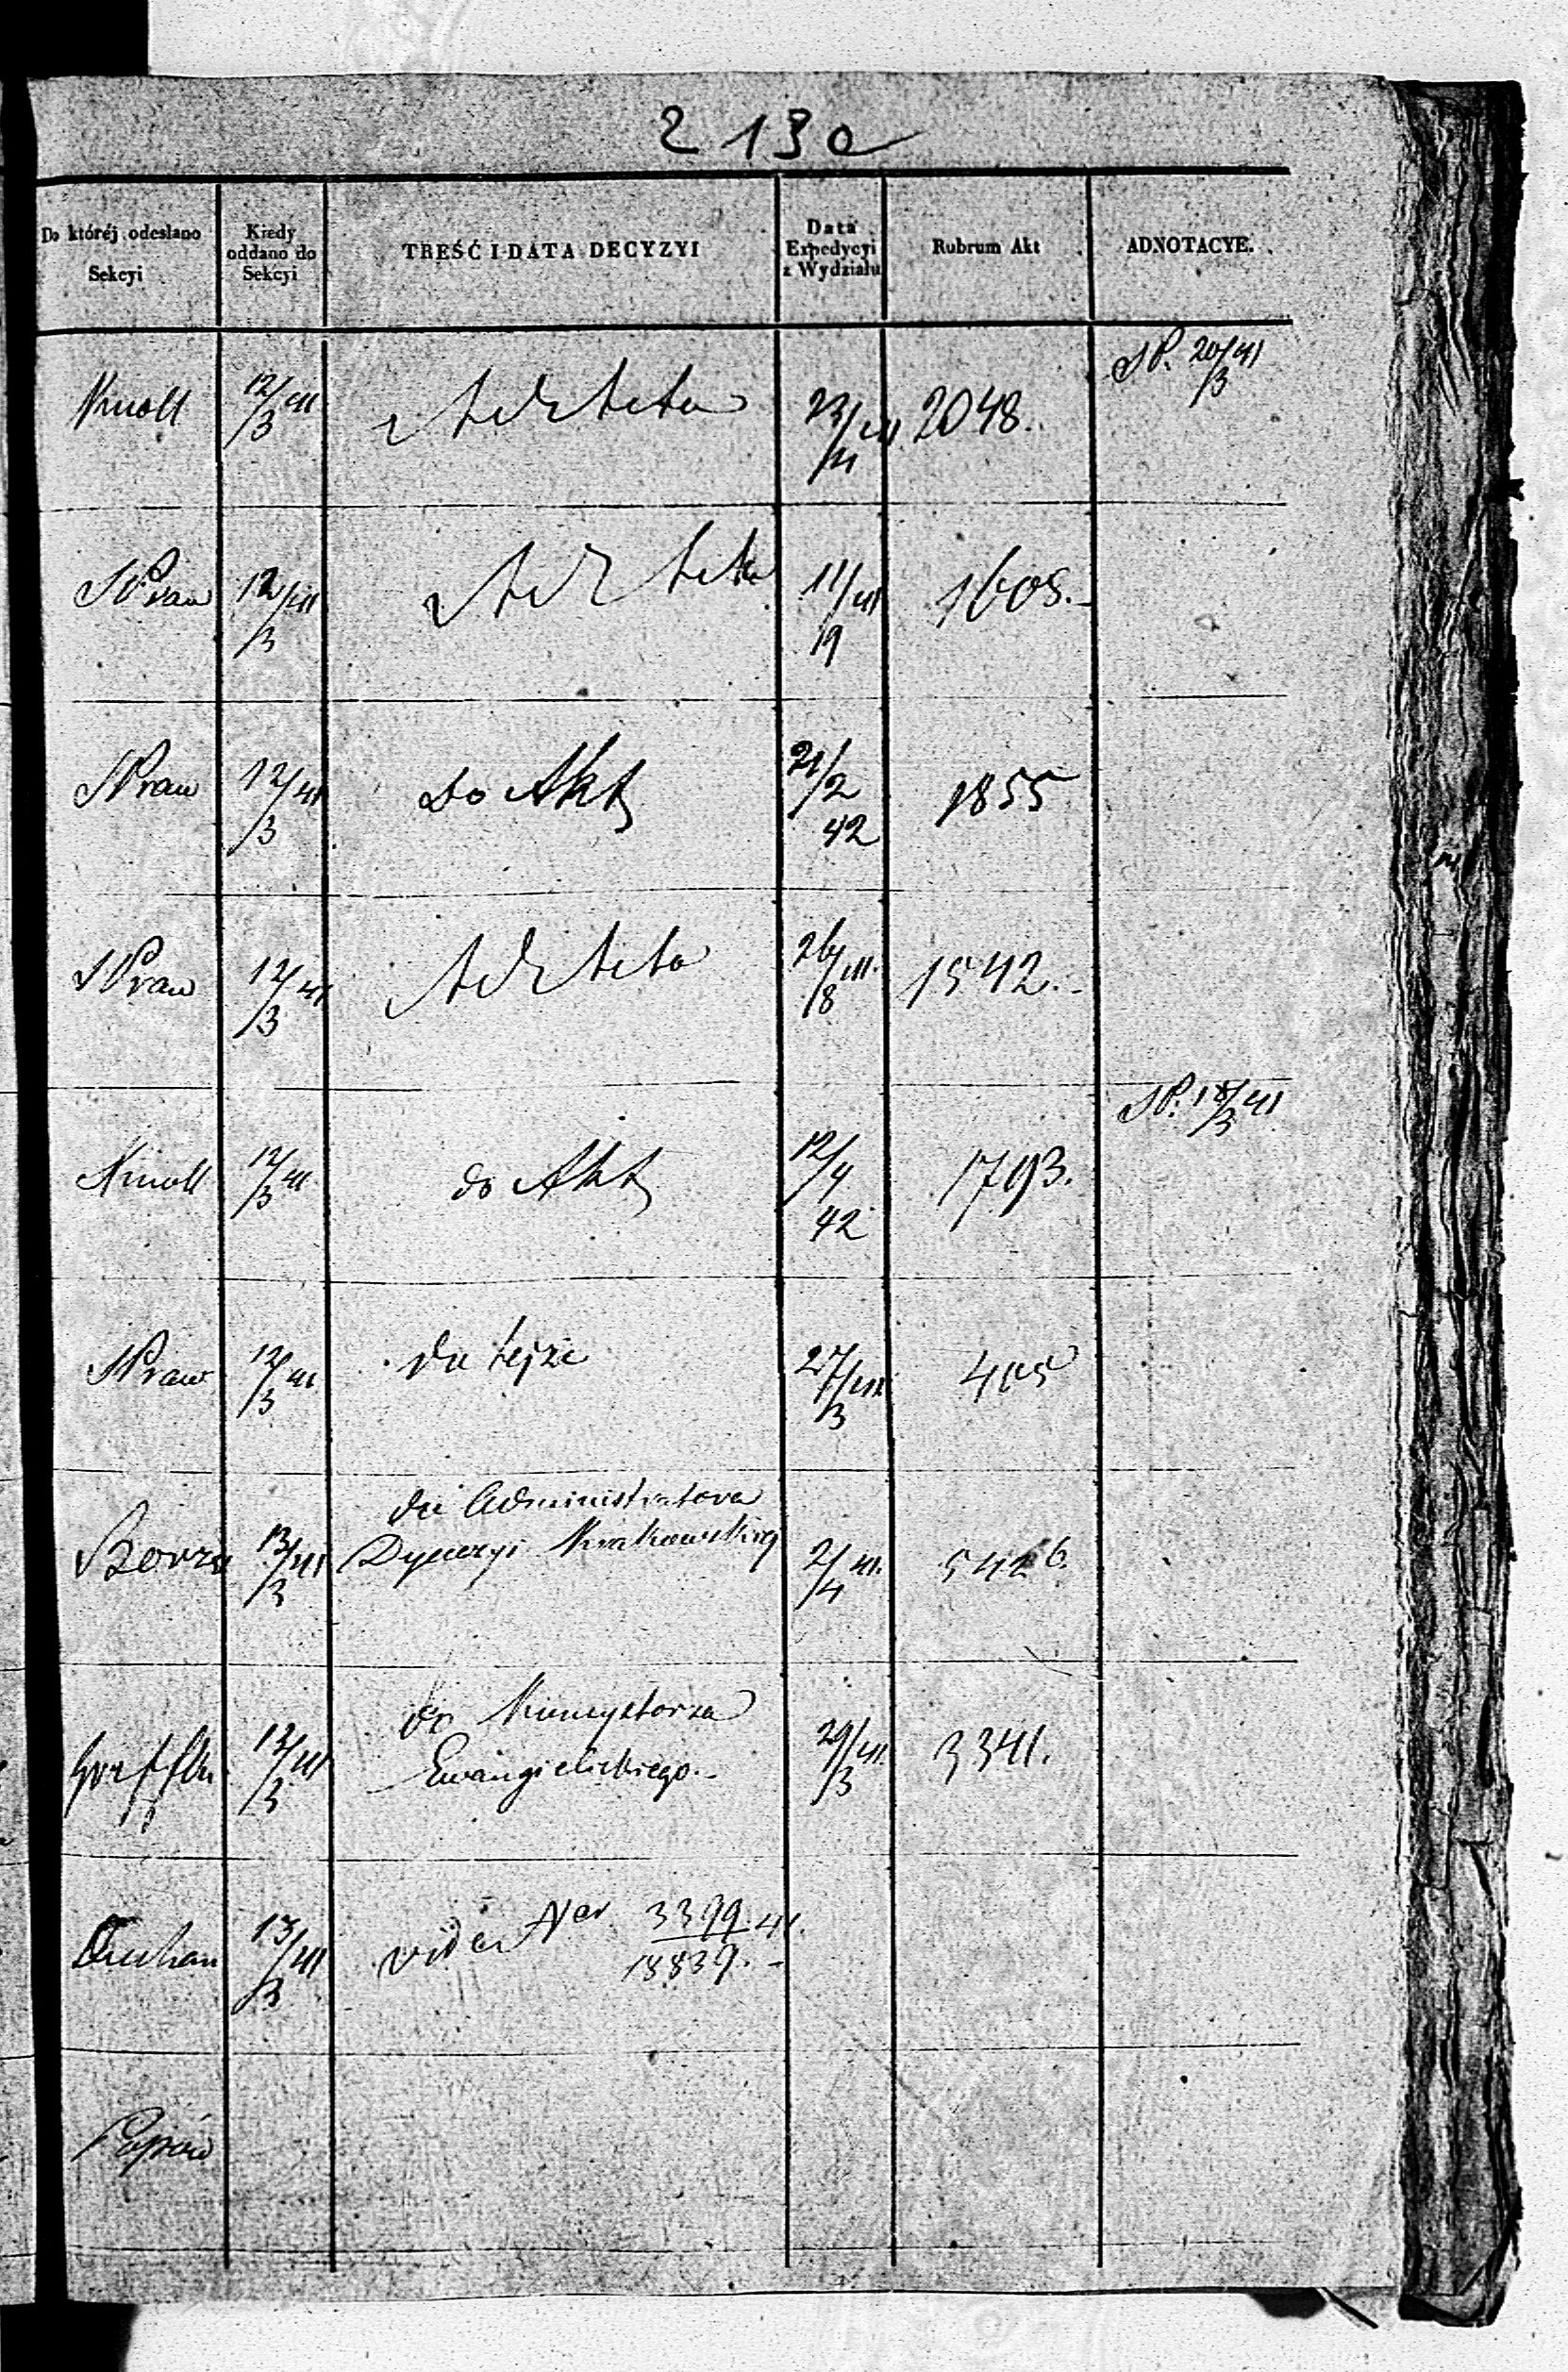 2130
Do któréj odesłano Sekcyi
Kiedy oddano do Sekcyi
TREŚĆ I DATA DECYZYI
Data Expedycyi z Wydziału
Rubrum Akt
ADNOTACYE.
SP. 20/3 41
Knoll 12/3 41 Ad Acta 23/11 41 2048.
SPraw 12/3 41 Ad Acta 11/9 41 1605.
SPraw 12/3 41 Do Akt 21/2 42 1855
SPraw 12/3 41 Ad Acta 26/8 41. 1542.
SP. 18/3 41
Knoll 12/3 41 do Akt 12/4 42 1793.
SPraw 12/3 41 do tejże 27/3 41 405
do Administratora
13/3 41 Dyecezyi Krakowskiej 2/4 41. 5426.
do Konsystorza
13/3 41 Ewangielickiego. 29/3 41. 3341.
13/3 41 vide Ner 3399/18839. 41.